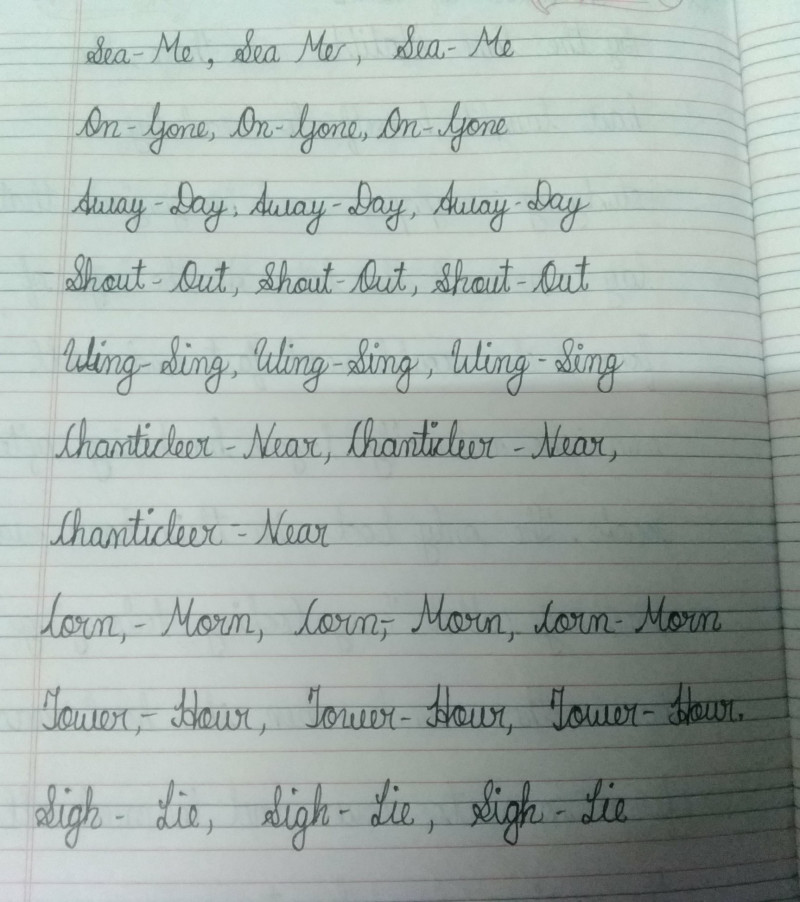 Sea-Me, Sea Me, Sea-Me
On-Gone, On-Gone, On-Gone
Away-Day, Away-Day, Away-Day
Shout-Out, Shout-Out, Shout-Out
Wing-Sing, Wing-Sing, Wing-Sing
Chanticleer-Near, Chanticleer-Near,
Chanticleer-Near
Corn,-Morn, Corn,-Morn, Corn-Morn
Tower,-Hour, Tower-Hour, Tower-Hour.
Sigh-Lie, Sigh-Lie, Sigh-Lie